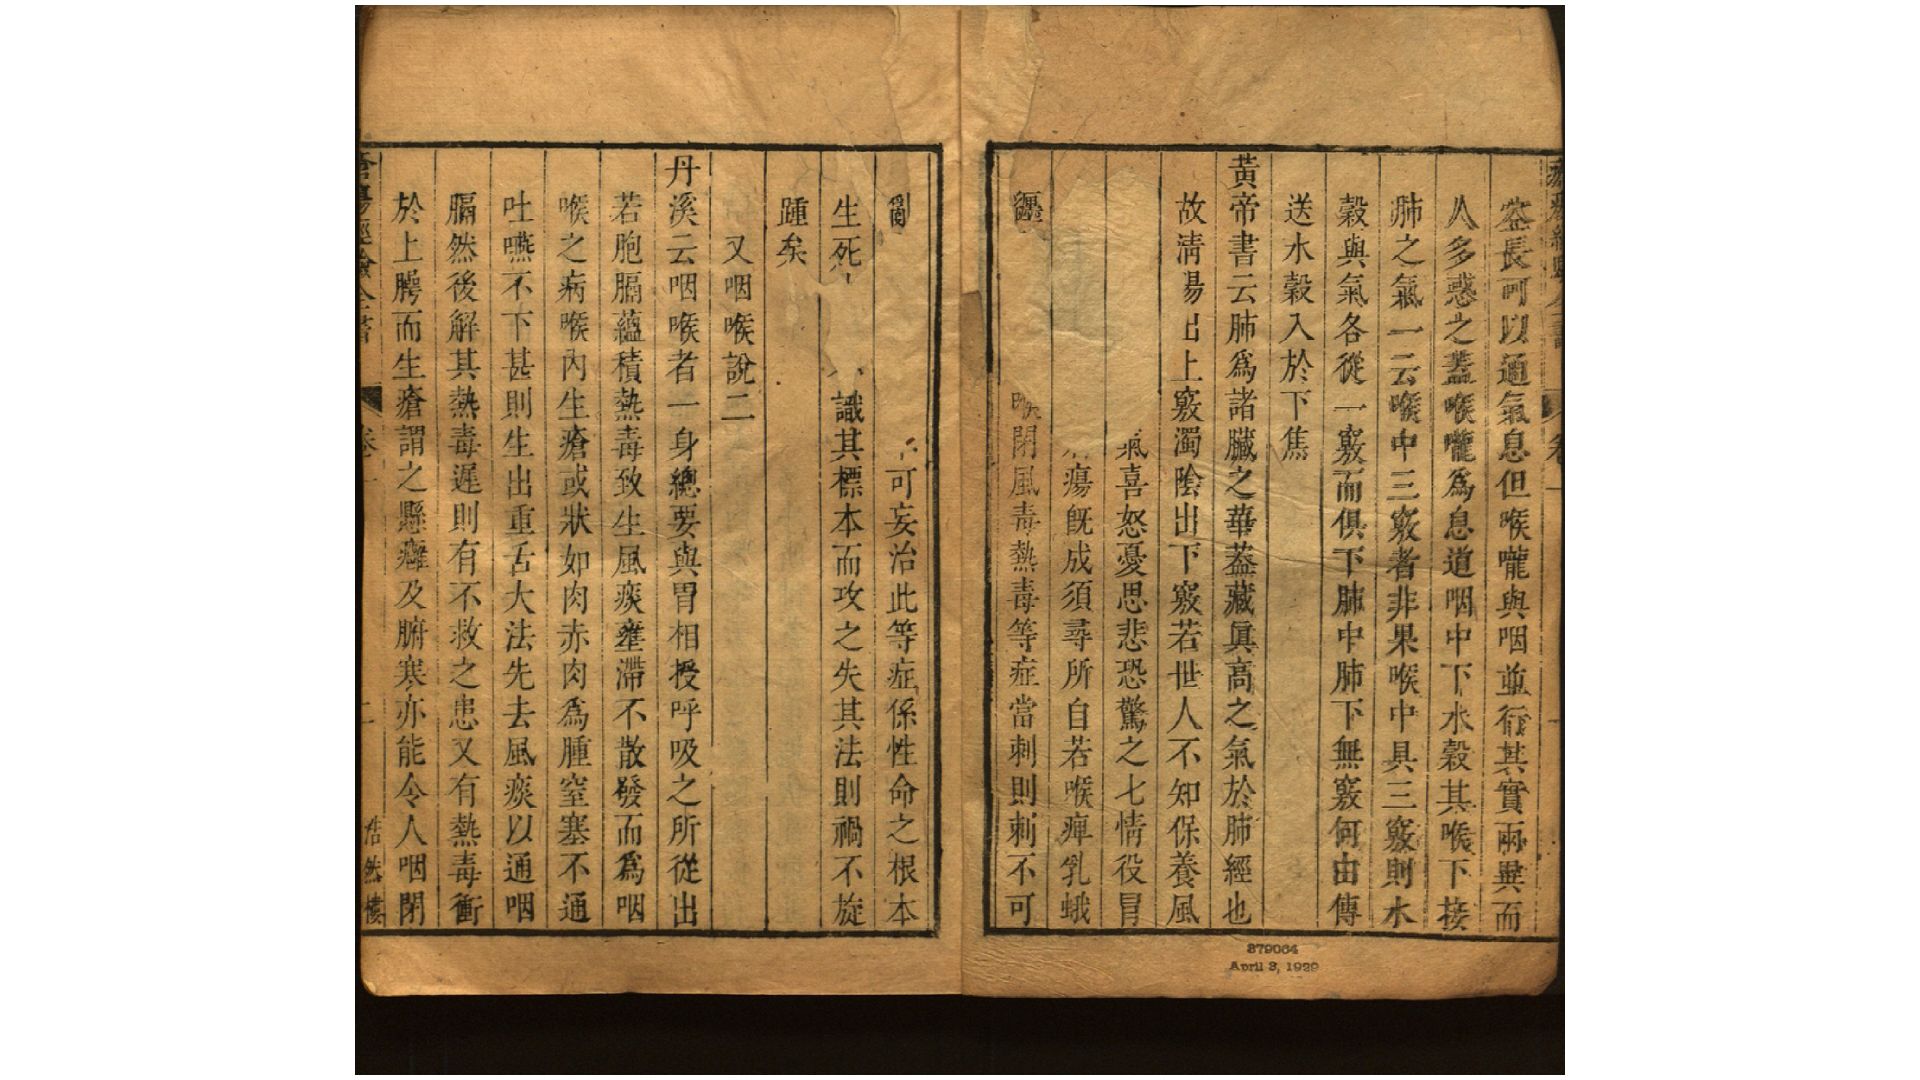 空長可以通氣息但喉嚨與咽並行其實兩異而
人多惑之蓋喉嚨爲息道咽中下水穀其喉下接
肺之氣一云喉中三竅者非果喉中具三竅則水
穀與氣各從一竅而俱下肺中肺下無竅何由傳
送水穀入於下焦
黃帝書云肺爲諸臟之華蓋藏眞高之氣於肺經也
故清陽出上竅濁陰出下竅若世人不知保養風
氣喜怒憂思悲恐驚之七情役冒
瘍旣成須尋所自若喉痺乳蛾
纏喉閉風毒熱毒等症當刺則刺不可
可妄治此等症係性命之根本
生死識其標本而攻之失其法則禍不旋
踵矣
又咽喉說二
丹溪云咽喉者一身總要與胃相授呼吸之所從出
若胞膈蘊積熱毒致生風痰壅滯不散發而爲咽
喉之病喉內生瘡或狀如肉赤肉爲腫窒塞不通
吐嚥不下甚則生出重舌大法先去風痰以通咽
膈然後解其熱毒遲則有不救之患又有熱毒衝
於上腭而生瘡謂之懸癰及腑寒亦能令人咽閉
卷一 二 浩然樓
379064
April 3, 1929